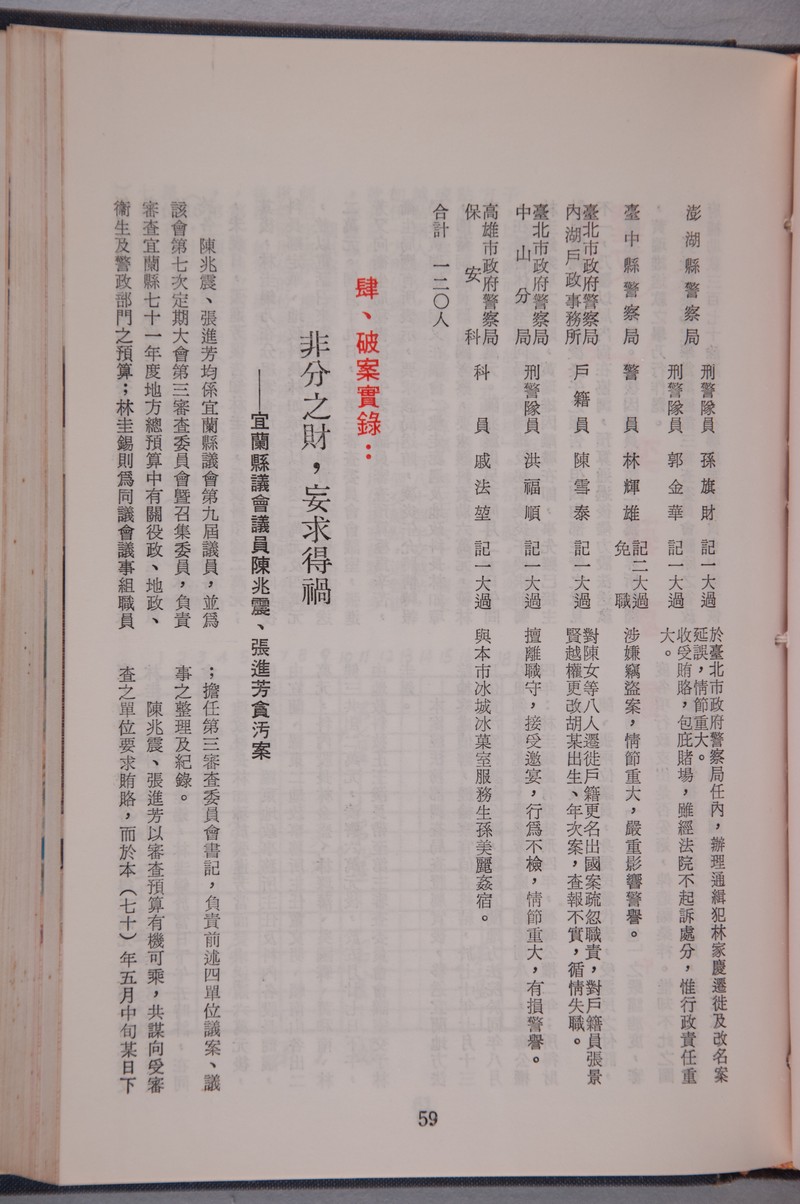 澎湖縣警察局 刑警隊員 孫旗財 記一大過 於臺北市政府警察局任內，辦理通緝犯林家慶遷徙及改名案
延誤，情節重大。
刑警隊員 郭金華 記一大過 收受賄賂，包庇賭場，雖經法院不起訴處分，惟行政責任重
大。
臺中縣警察局 警員 林輝雄 記二大過
免職 涉嫌竊盜案，情節重大，嚴重影響警譽。
臺北市政府警察局
內湖戶政事務所 戶籍員 陳雪泰 記一大過 對陳女等八人遷徙戶籍更名出國案疏忽職責，對戶籍員張景
賢越權更改胡某出生、年次案，查報不實，循情失職。
臺北市政府警察局
中山分局 刑警隊員 洪福順 記一大過 擅離職守，接受邀宴，行為不檢，情節重大，有損警譽。
高雄市政府警察局
保安科 科員 戚法堃 記一大過 與本市冰城冰菓室服務生孫美麗姦宿。
合計 一二〇人
肆、破案實錄：
非分之財，妄求得禍
——宜蘭縣議會議員陳兆震、張進芳貪汚案
陳兆震、張進芳均係宜蘭縣議會第九屆議員，並爲
該會第七次定期大會第三審查委員會暨召集委員，負責
審查宜蘭縣七十一年度地方總預算中有關役政、地政、
衞生及警政部門之預算；林圭錫則爲同議會議事組職員
；擔任第三審查委員會書記，負責前述四單位議案、議
事之整理及紀錄。
陳兆震、張進芳以審查預算有機可乘，共謀向受審
查之單位要求賄賂，而於本（七十）年五月中旬某日下
59